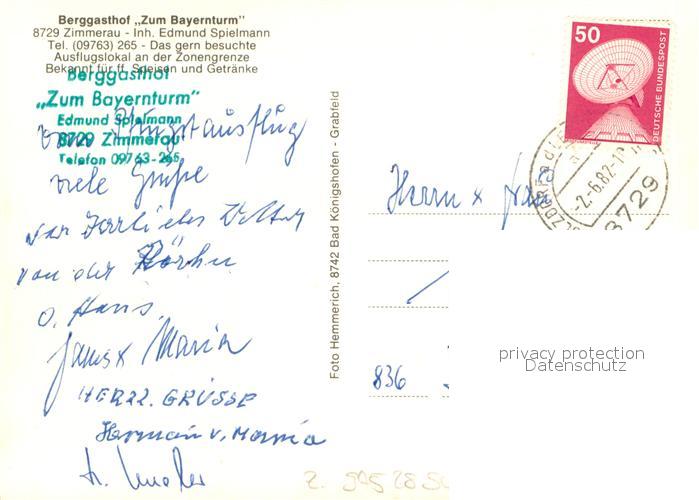 Berggasthof „Zum Bayernturm"
8729 Zimmerau - Inh. Edmund Spielmann
Tel. (09763) 265 - Das gern besuchte
Ausflugslokal an der Zonengrenze
Bekannt für ff. Speisen und Getränke
Berggasthof
„Zum Bayernturm"
Edmund Spielmann
8729 Zimmerau
Telefon 09763-265
vom Pfingstausflug
viele Grüße
von der
o. Hans,
Maria
HERZL. GRÜSSE
Hermann u. Maria
Foto Hemmerich, 8742 Bad Königshofen - Grabfeld
50
DEUTSCHE BUNDESPOST
-2.-6.82-1
8729
Herrn x
836
privacy protection
Datenschutz